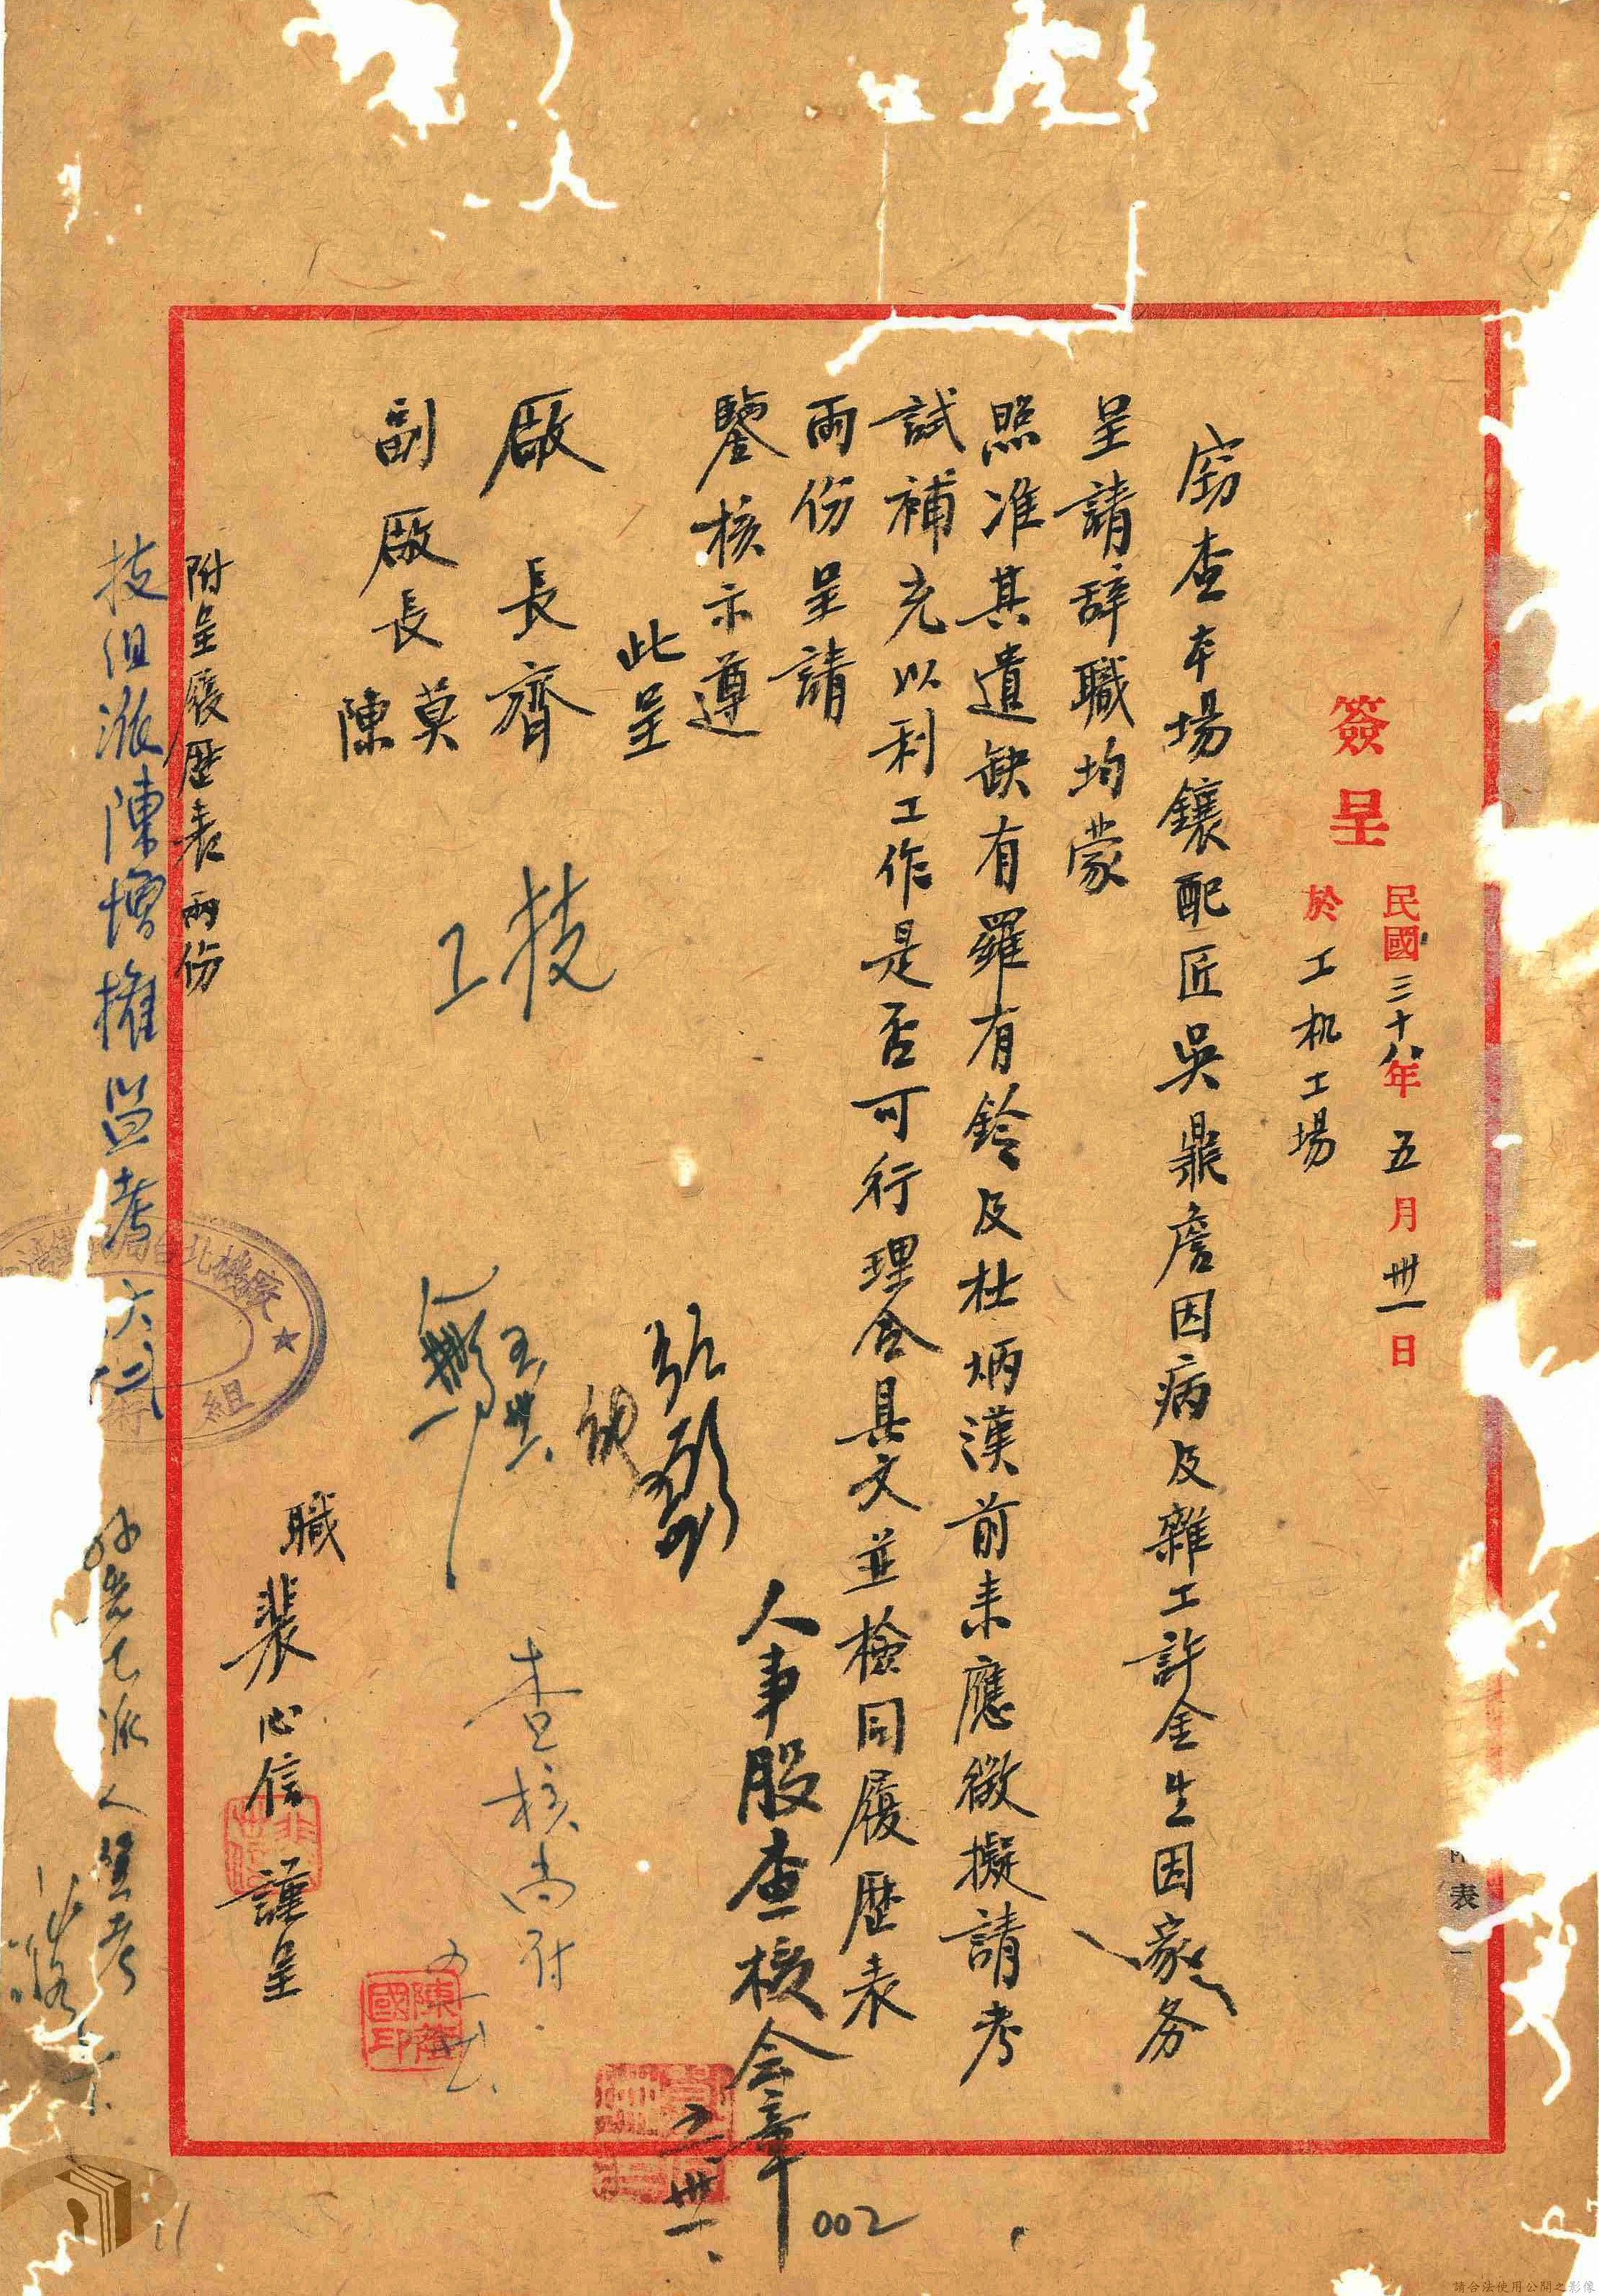 簽呈
民國三十八年五月卅一日
於工机工場
竊查本場鑲配匠吳鼎詹因病及雜工許金生因家务
呈請辞職均蒙
照准其遺缺有羅有鈴及杜炳漢前来應徵擬請考
試補充以利工作是否可行理合具文並檢同履歷表
兩份呈請
鑒核示遵
此呈
廠長齊
副廠長莫
陳
技
工
人事股查核会章
五卅一
查核尚符
職裴心信謹呈
附呈履歷表兩份
技組派陳增權監考
台北機廠
組
陳
國印
表
002
11
請合法使用公開之影像